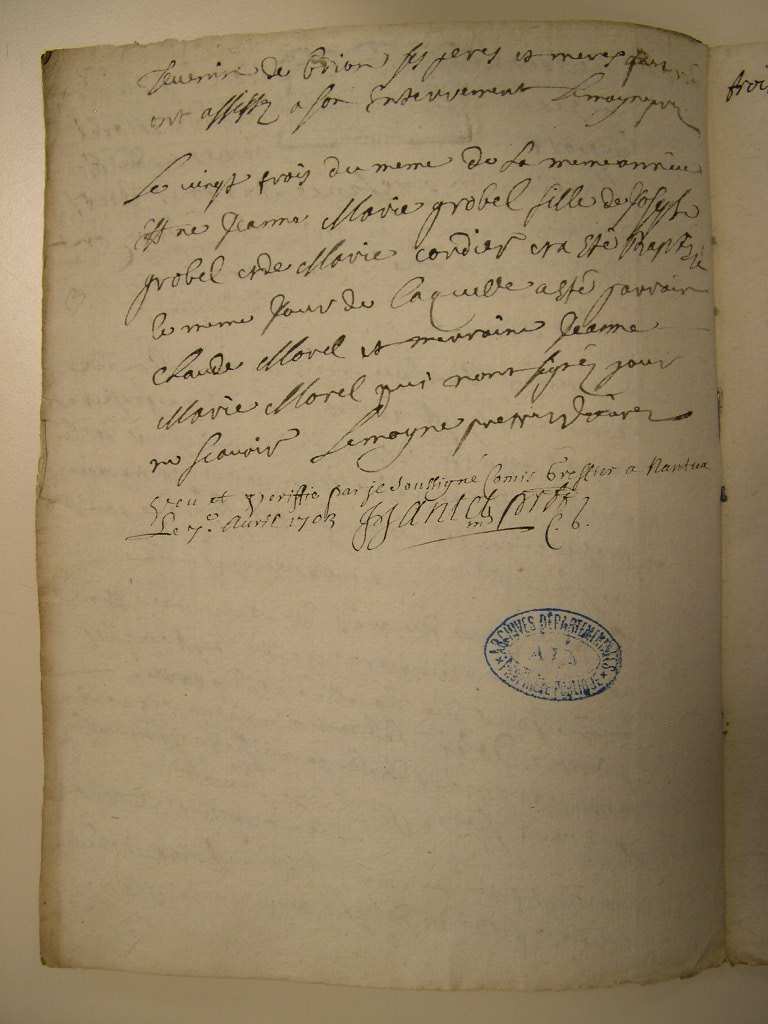 de brion ses peres et meres
ont assisté a son enterrement Lemoyne
Le vingt trois du meme de la meme année
est né Jeanne Marie grobel fille de Joseph
grobel et de Marie cordier et a esté Baptisé
le meme Jour de laquelle a esté parrain
Claude Morel et marraine Jeanne
Marie Morel qui nont signéz pour
ne scavoir Lemoyne
veu et veriffie par je soussigné Comis Greffier a Nantua
Le 7e. Avril 1703
ARCHIVES DÉPARTEMENTALES
PROPRIÉTÉ PUBLIQUE
trois